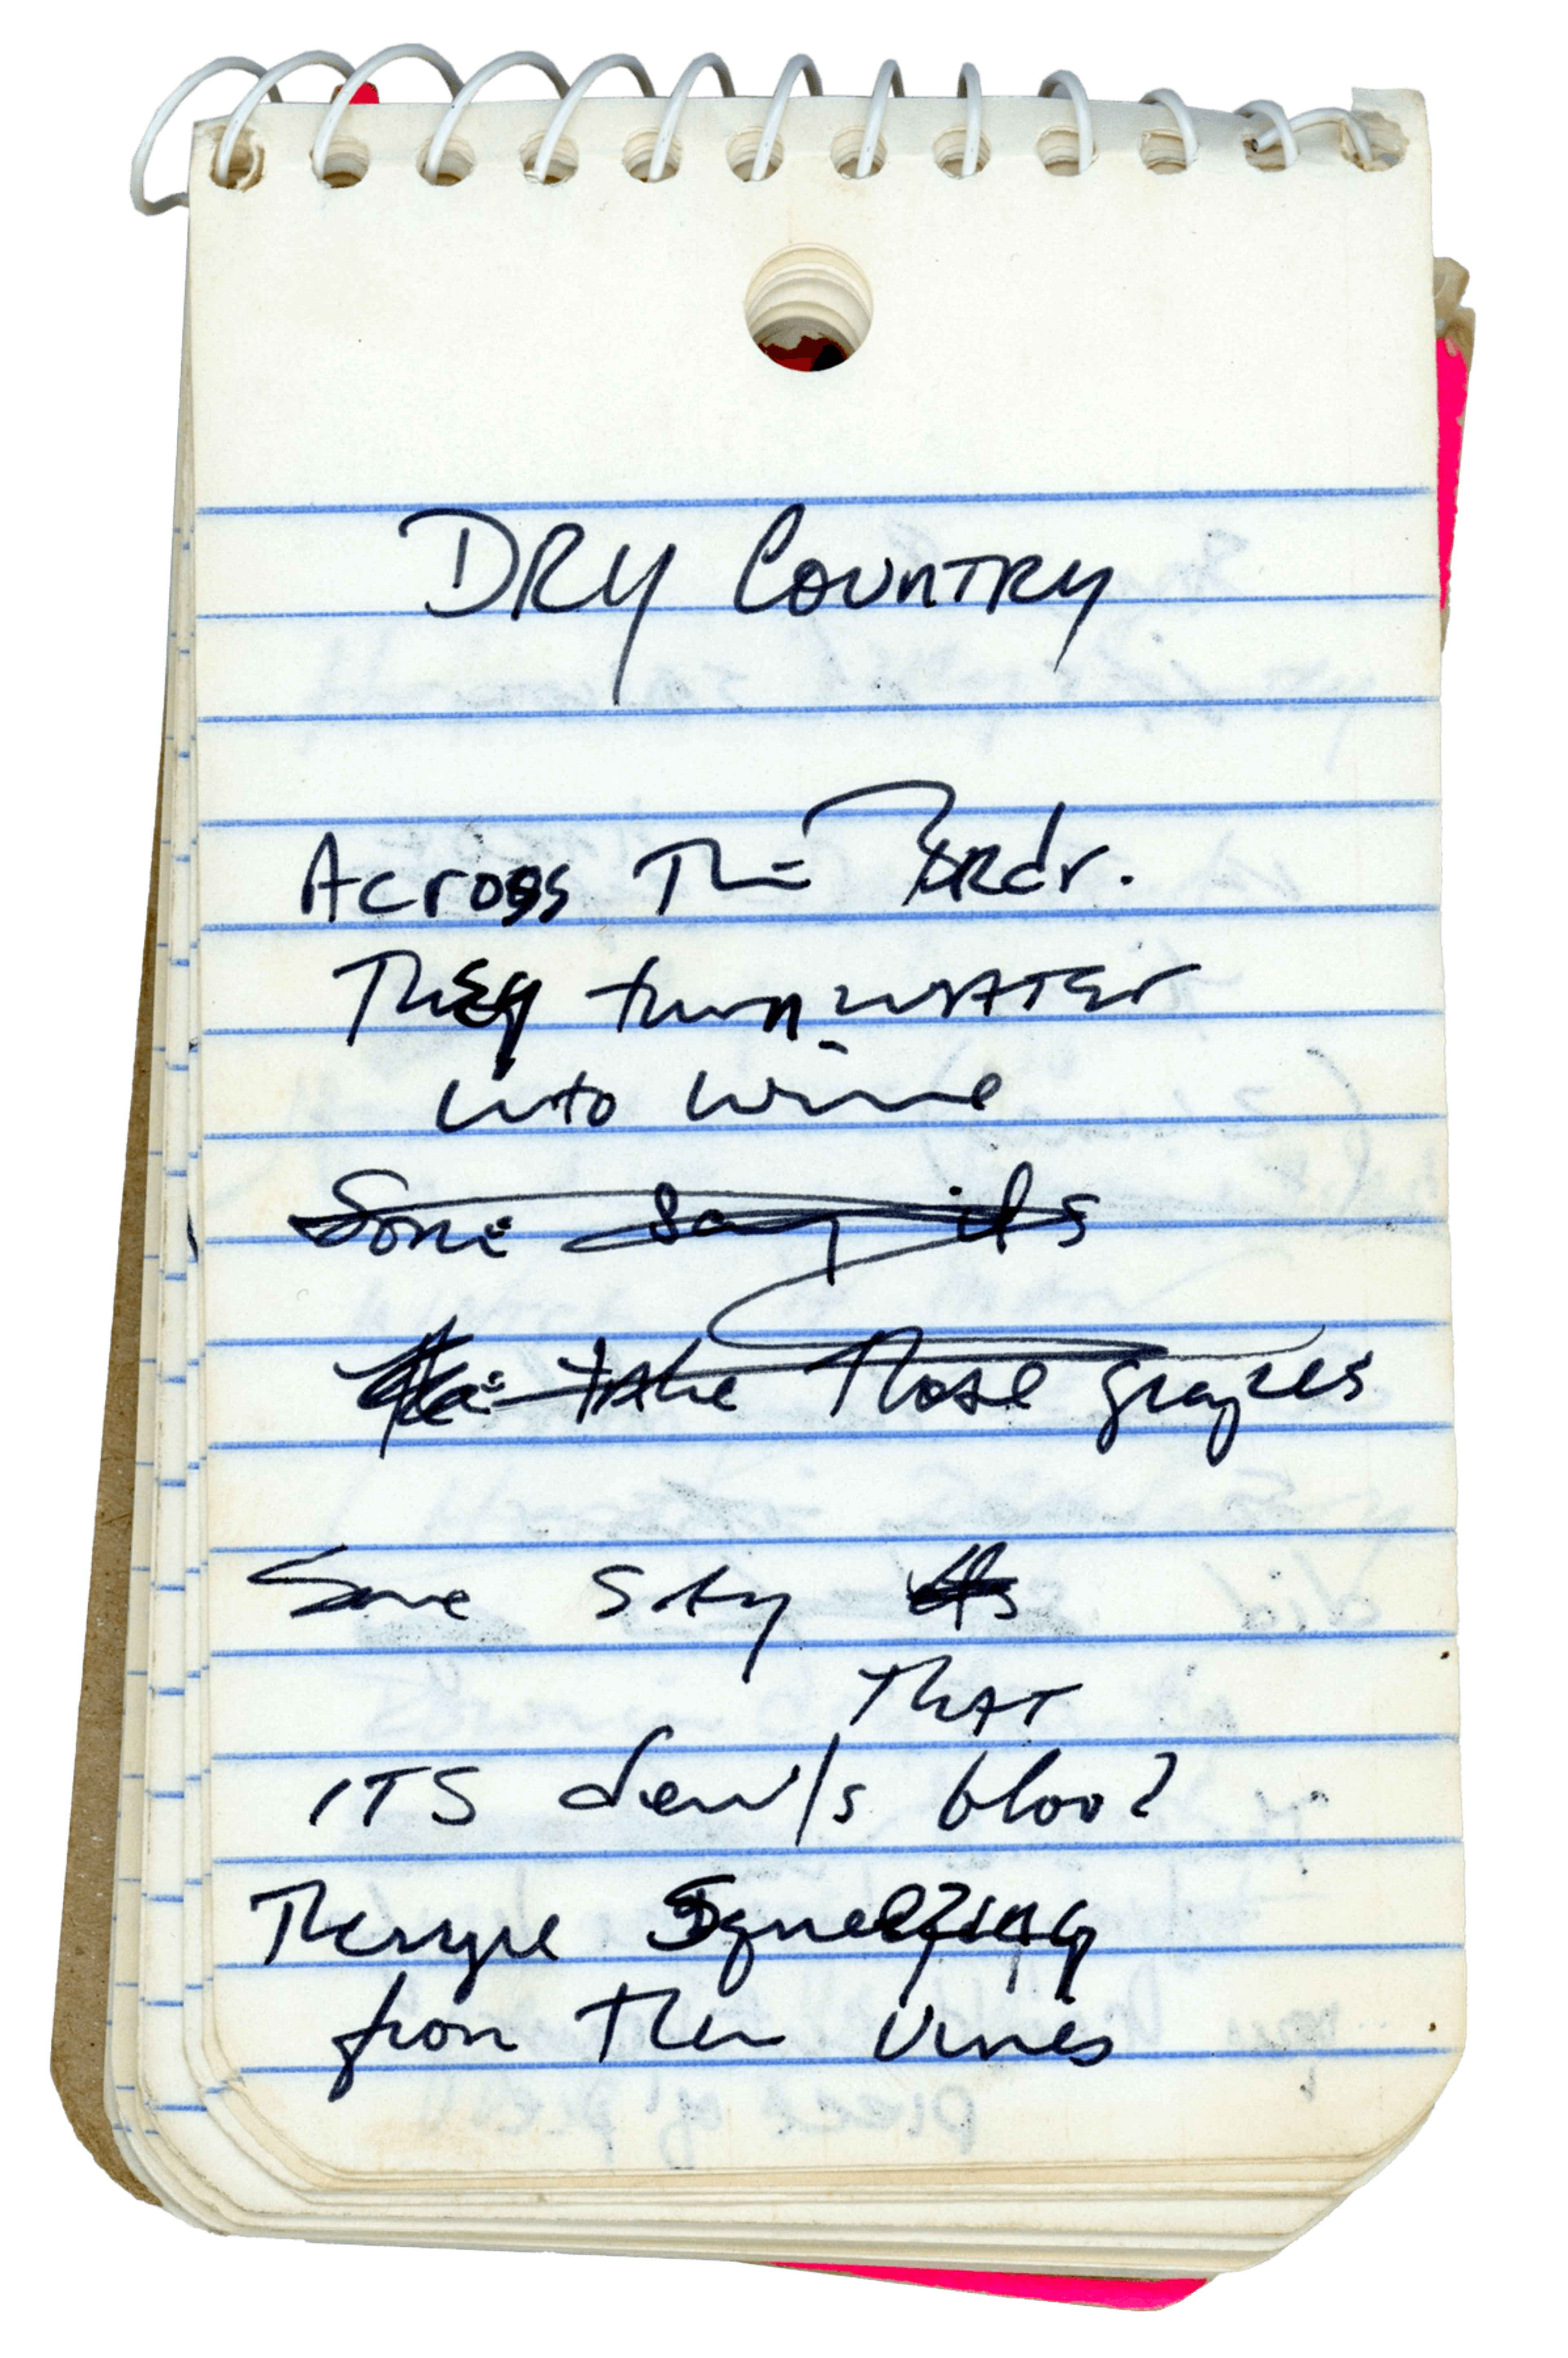 DRY COUNTRY
Across The Bordr.
They turn WATEr
into wine
Some say its
take those grapes
Some SAy its
THAT
ITS devils blood
Theryre Squeezing
from Then vines